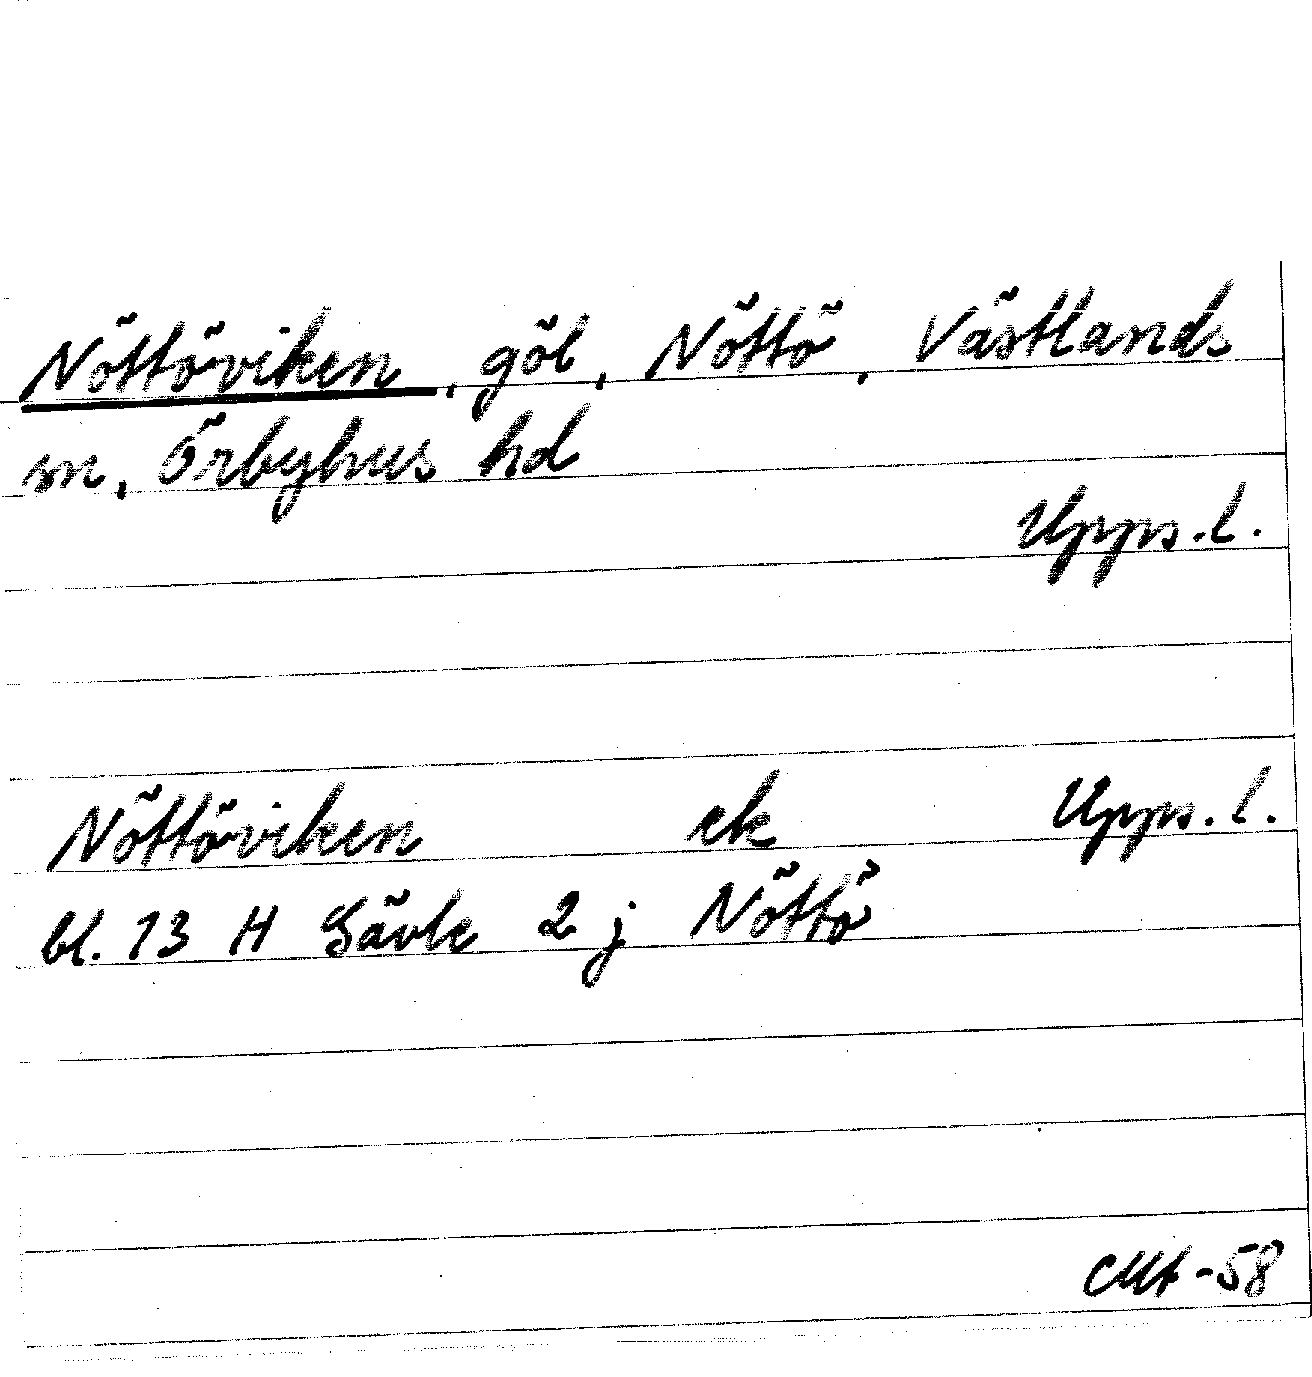 Nöttöviken, göl, Nöttö, Västlands
sn, Örbyhus hd
Upps. l.
Nöttöviken ek Upps. l.
bl. 13 H Gävle 2 j Nöttö
-58